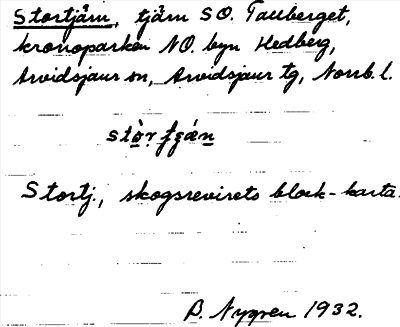 Stortjärn, tjärn SO. Tallberget,
kronoparken NO. byn Hedberg,
Arvidsjaur sn, Arvidsjaur tg, Norrb. l.
Stortj., skogsrevirets block-karta.
B. Nygren 1932.